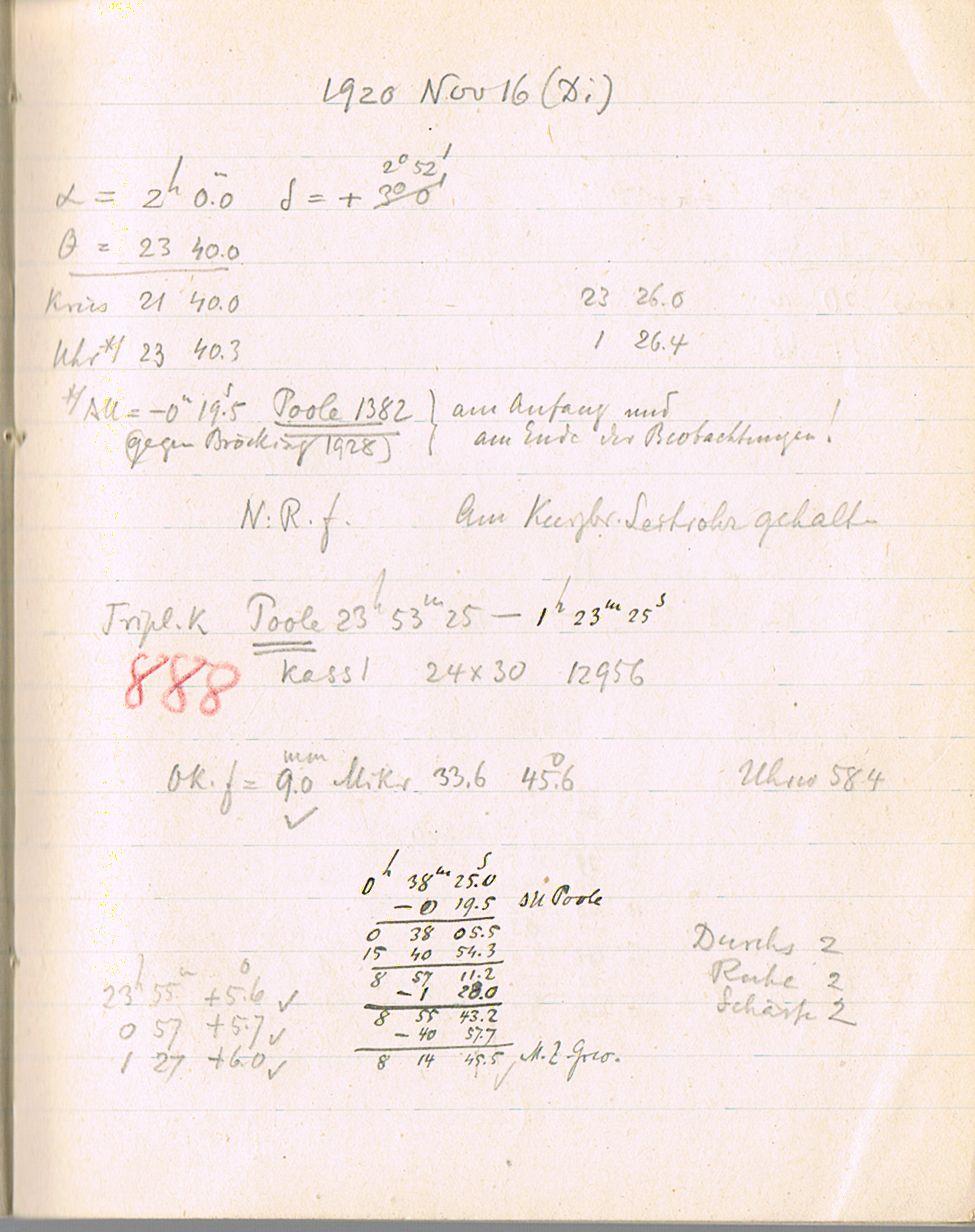 1920 Nov 16 (Di)
2° 52'
α = 2h 0.m0 δ = + 3° 0'
θ = 23 40.0
Kreis 21 40.0 23 26.0
Uhr*) 23 40.3 1 26.4
*) ΔU = -0m 19.s5 Poole 1382 } am Anfang und
(gegen Bröcking 1928) } am Ende der Beobachtungen!
N.R.f. Am Leitrohr gehalt
Tripl.K Poole 23h 53m 25 — 1h 23m 25s
888 Kass 1 24x30 12956
Ok. f = 9.0 mm Mikr 33.6 45.°6 Uhrw 584
0h 38m 25.s0
-0 19.5 ΔU Poole
0 38 05.5
15 40 54.3
8 57 11.2
-1 28.0
8 55 43.2
-40 57.7
8 14 45.5 M.Z. Grw.
Durchs 2
Ruhe 2
Schärfe 2
23h 55m +5.°6 ✓
0 57 +5.7 ✓
1 27 +6.0 ✓